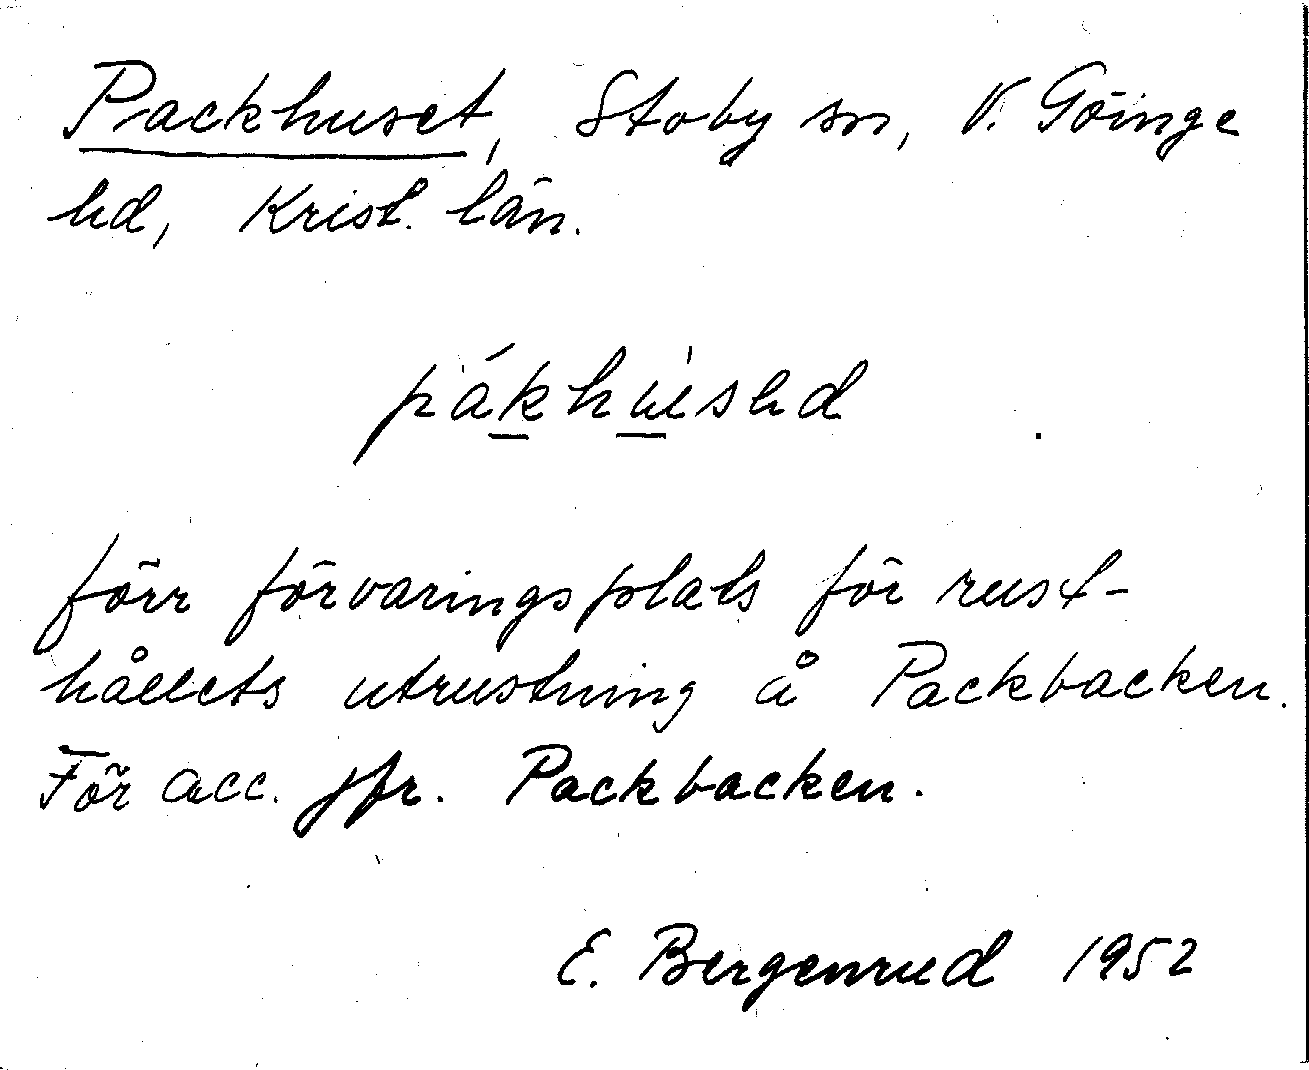 Packhuset, Stoby sn, V. Göinge
hd, Krist. län.
pákhùsed
förr förvaringsplats för rust-
hållets utrustning å Packbacken.
För acc. jfr. Packbacken.
E. Bergenrud 1952